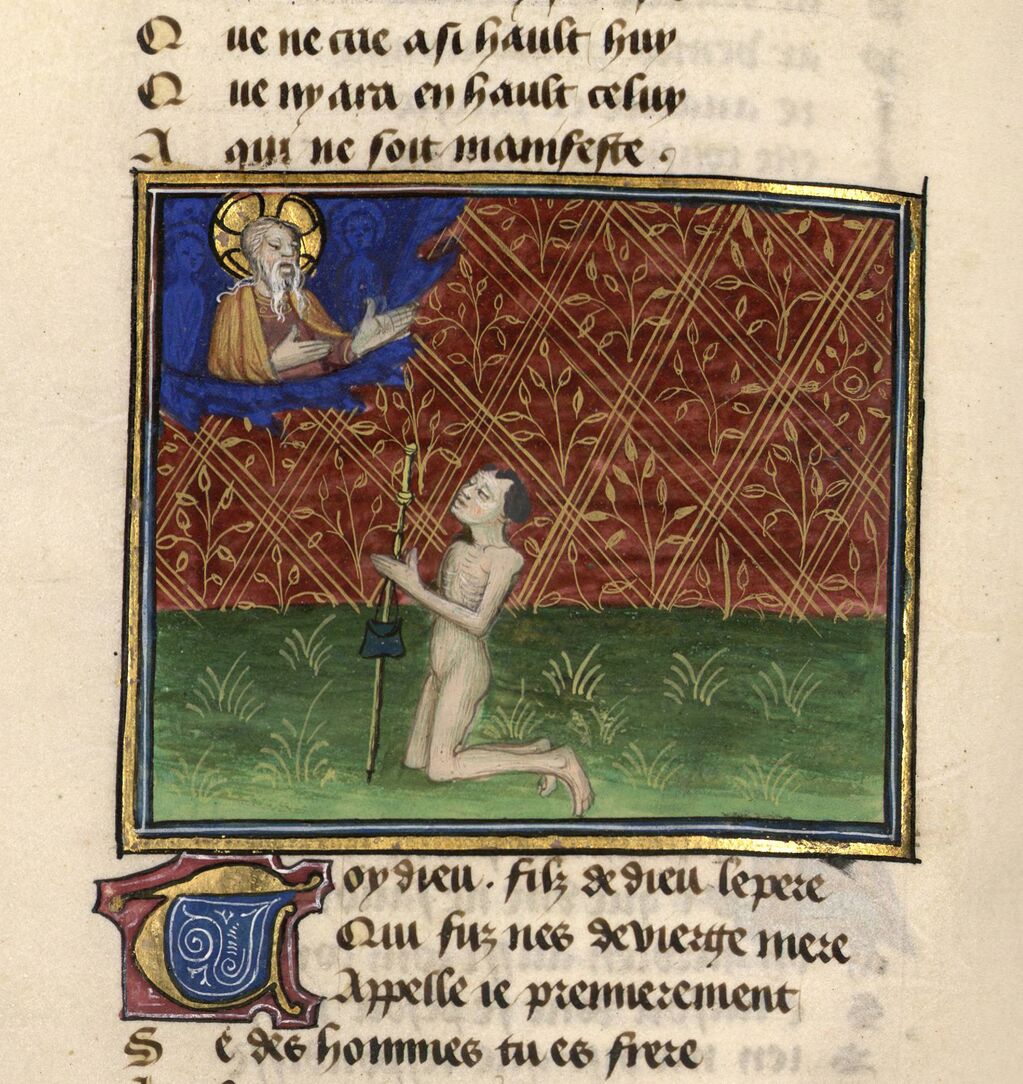 Que ne crie a si hault huy
Que ny ara en hault celuy
A qui ne soit manifeste.
Toy dieu. filz de dieu le pere
Qui fuz nes de vierge mere
Appelle ie premierement
Se des hommes tu es frere